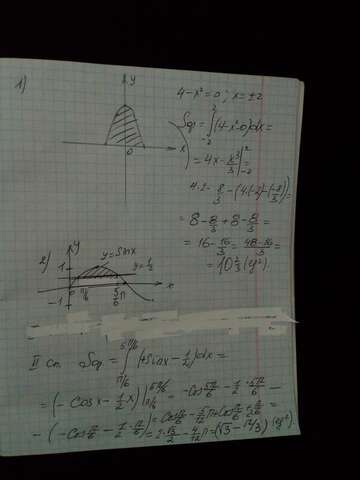 1)
y
x
0
4-x²=0; x=±2
Sф=∫₋₂²(4-x²-0)dx=
=4x-x³/3|₋₂²
4·2-8/3-(4·(-2)-(-8/3))=
=8-8/3+8-8/3=
=16-16/3=(48-16)/3=
=10 2/3 (ед²).
2)
y
y=sinx
y=1/2
1
-1
0
π/6
5/6π
x
II сп. Sф=∫π/6^5π/6(sinx-1/2)dx=
=(-cosx-1/2x)|π/6^5π/6=-cos5π/6-1/2·5π/6-
-(-cosπ/6-1/2·π/6)=
=2·√3/2-4/12π=(√3-π/3)(ед²).